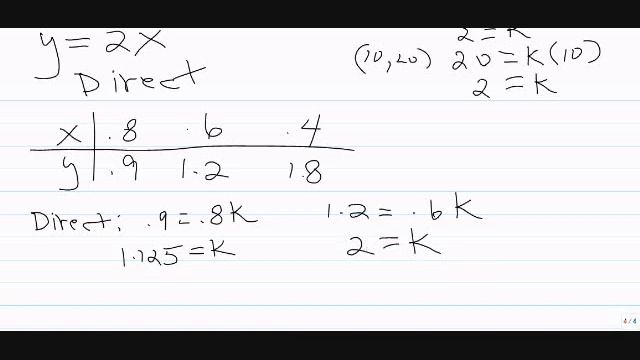 y = 2x
Direct
2 = K
(10, 20) 20 = K(10)
2 = K
x .8 .6 .4
y .9 1.2 1.8
Direct: .9 = .8K 1.2 = .6K
1.125 = K 2 = K